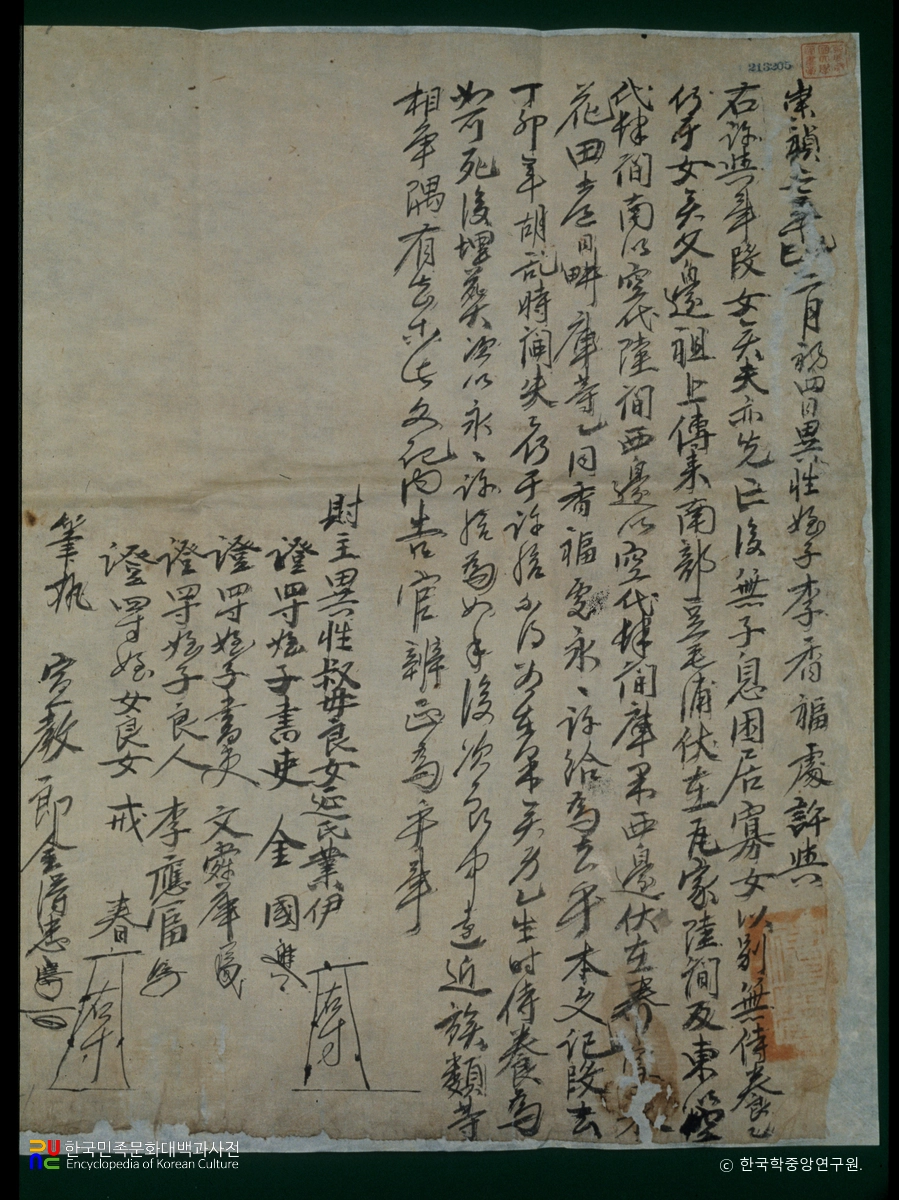 213205
崇禎二年己巳二月初四日異姓姪子李香福處許與
右許與事段女矣夫亦先亡後無子息困居寡女以別無侍養乙
仍于女矣父邊祖上傳來南部豆毛浦伏在瓦家陸間及東空
代肆間南以空代陸間西邊以空代肆間庫果西邊伏在
花田日畊庫等乙同香福處永〻許給爲去乎本文記段去
丁卯年胡亂時失乙仍于許給不得爲在果矣身乙生時侍養爲
如可死後埋葬次以永〻許給爲如乎後次良中遠近族類等
相爭隅有去等此文記內告官辨正爲乎事
財主異姓叔母良女延氏業伊 右寸
證四寸姪子書吏 金國興
證四寸姪子書吏 文舜
證四寸姪子良人 李應富
證四寸姪女良女 戒春 右寸
筆執 宣教郎金得忠
한국민족문화대백과사전
Encyclopedia of Korean Culture
© 한국학중앙연구원.